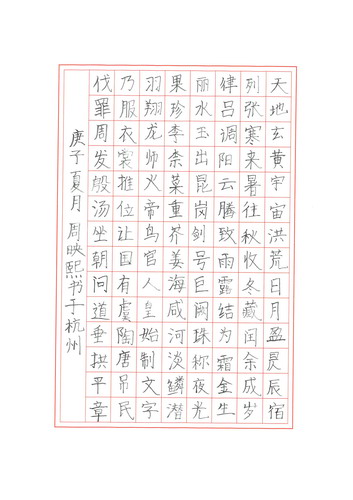 天地玄黄宇宙洪荒日月盈昃辰宿
列张寒来暑往秋收冬藏闰余成岁
律吕调阳云腾致雨露结为霜金生
丽水玉出昆岗剑号巨阙珠称夜光
果珍李柰菜重芥姜海咸河淡鳞潜
羽翔龙师火帝鸟官人皇始制文字
乃服衣裳推位让国有虞陶唐吊民
伐罪周发殷汤坐朝问道垂拱平章
庚子夏月 周映熙书于杭州